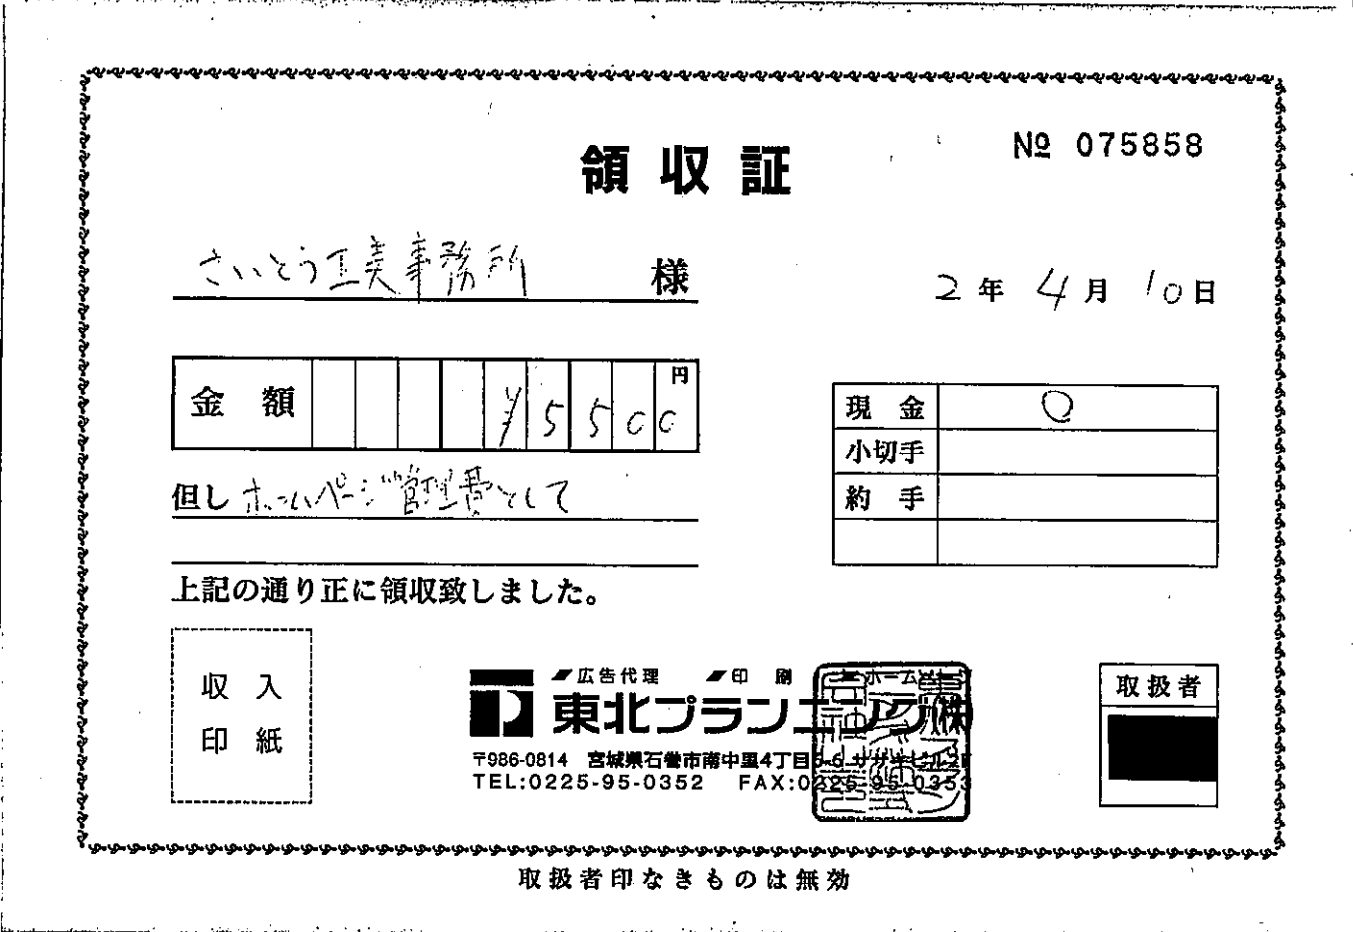 領収証
№ 075858
さいとう工美事務所 様
2年 4月 10日
金額 ¥5500円
現金 ○
小切手
約手
但し ホームページ管理費として
上記の通り正に領収致しました。
収入
印紙
広告代理 印刷 ホームページ
東北プランニング㈱
〒986-0814 宮城県石巻市南中里4丁目5-6 ササキビル2F
TEL:0225-95-0352 FAX:0225-95-0353
取扱者
取扱者印なきものは無効